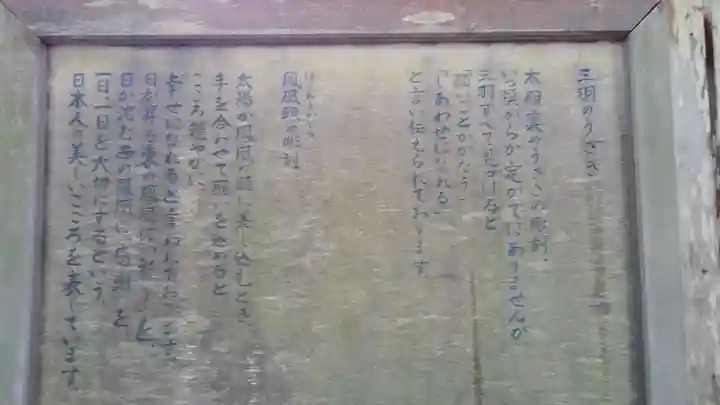 三羽のうさぎ
太瓶束のうさぎの彫刻、
いつ頃からか定かではありませんが
三羽すべて見つけると
「願いごとがかなう」
「しあわせになれる」
と言い伝えられております。
鳳凰頭の彫刻
太陽が鳳凰の頭に差し込むとき、
手を合わせて願いを込めると
こころ穏やかに
幸せになれると言われております。
日が昇る東の鳳凰に
日が沈む西の鳳凰に
一日一日を大切にするという、
日本人の美しいこころを表しています。